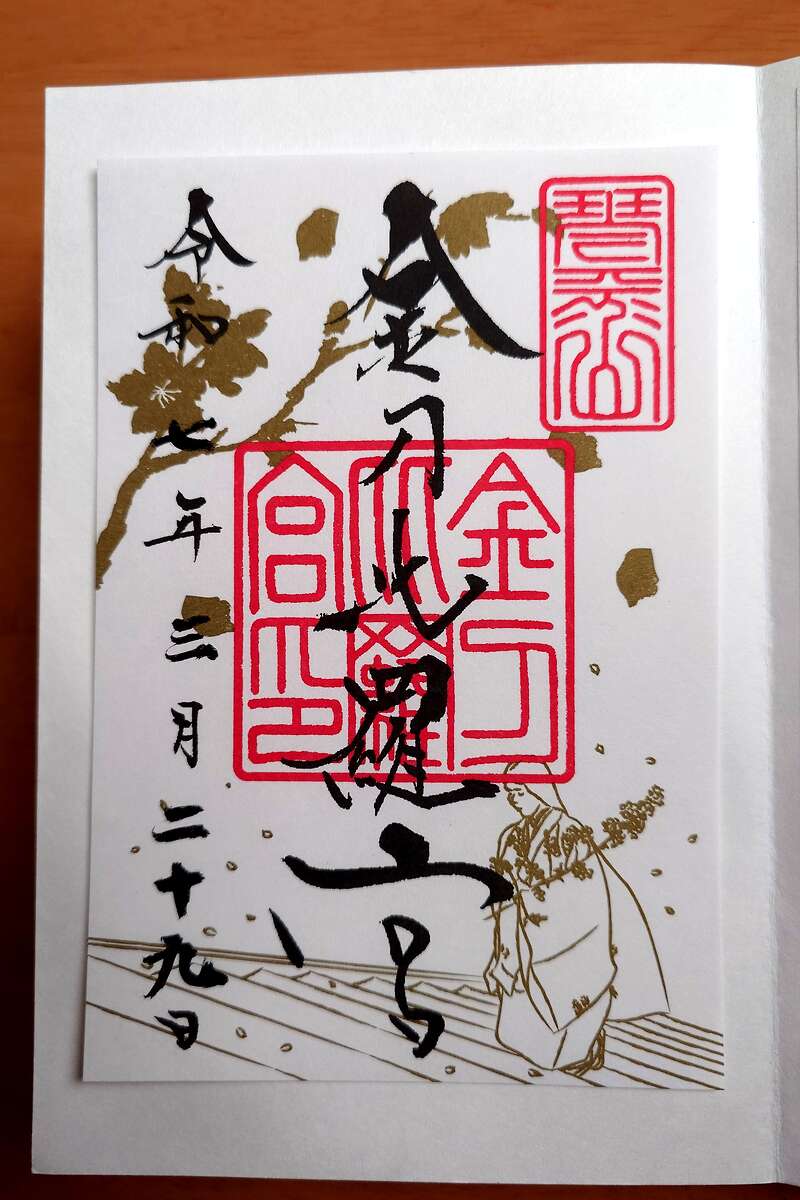 琴平山
金刀比羅宮
金刀
比羅
宮印
令和七年三月二十九日